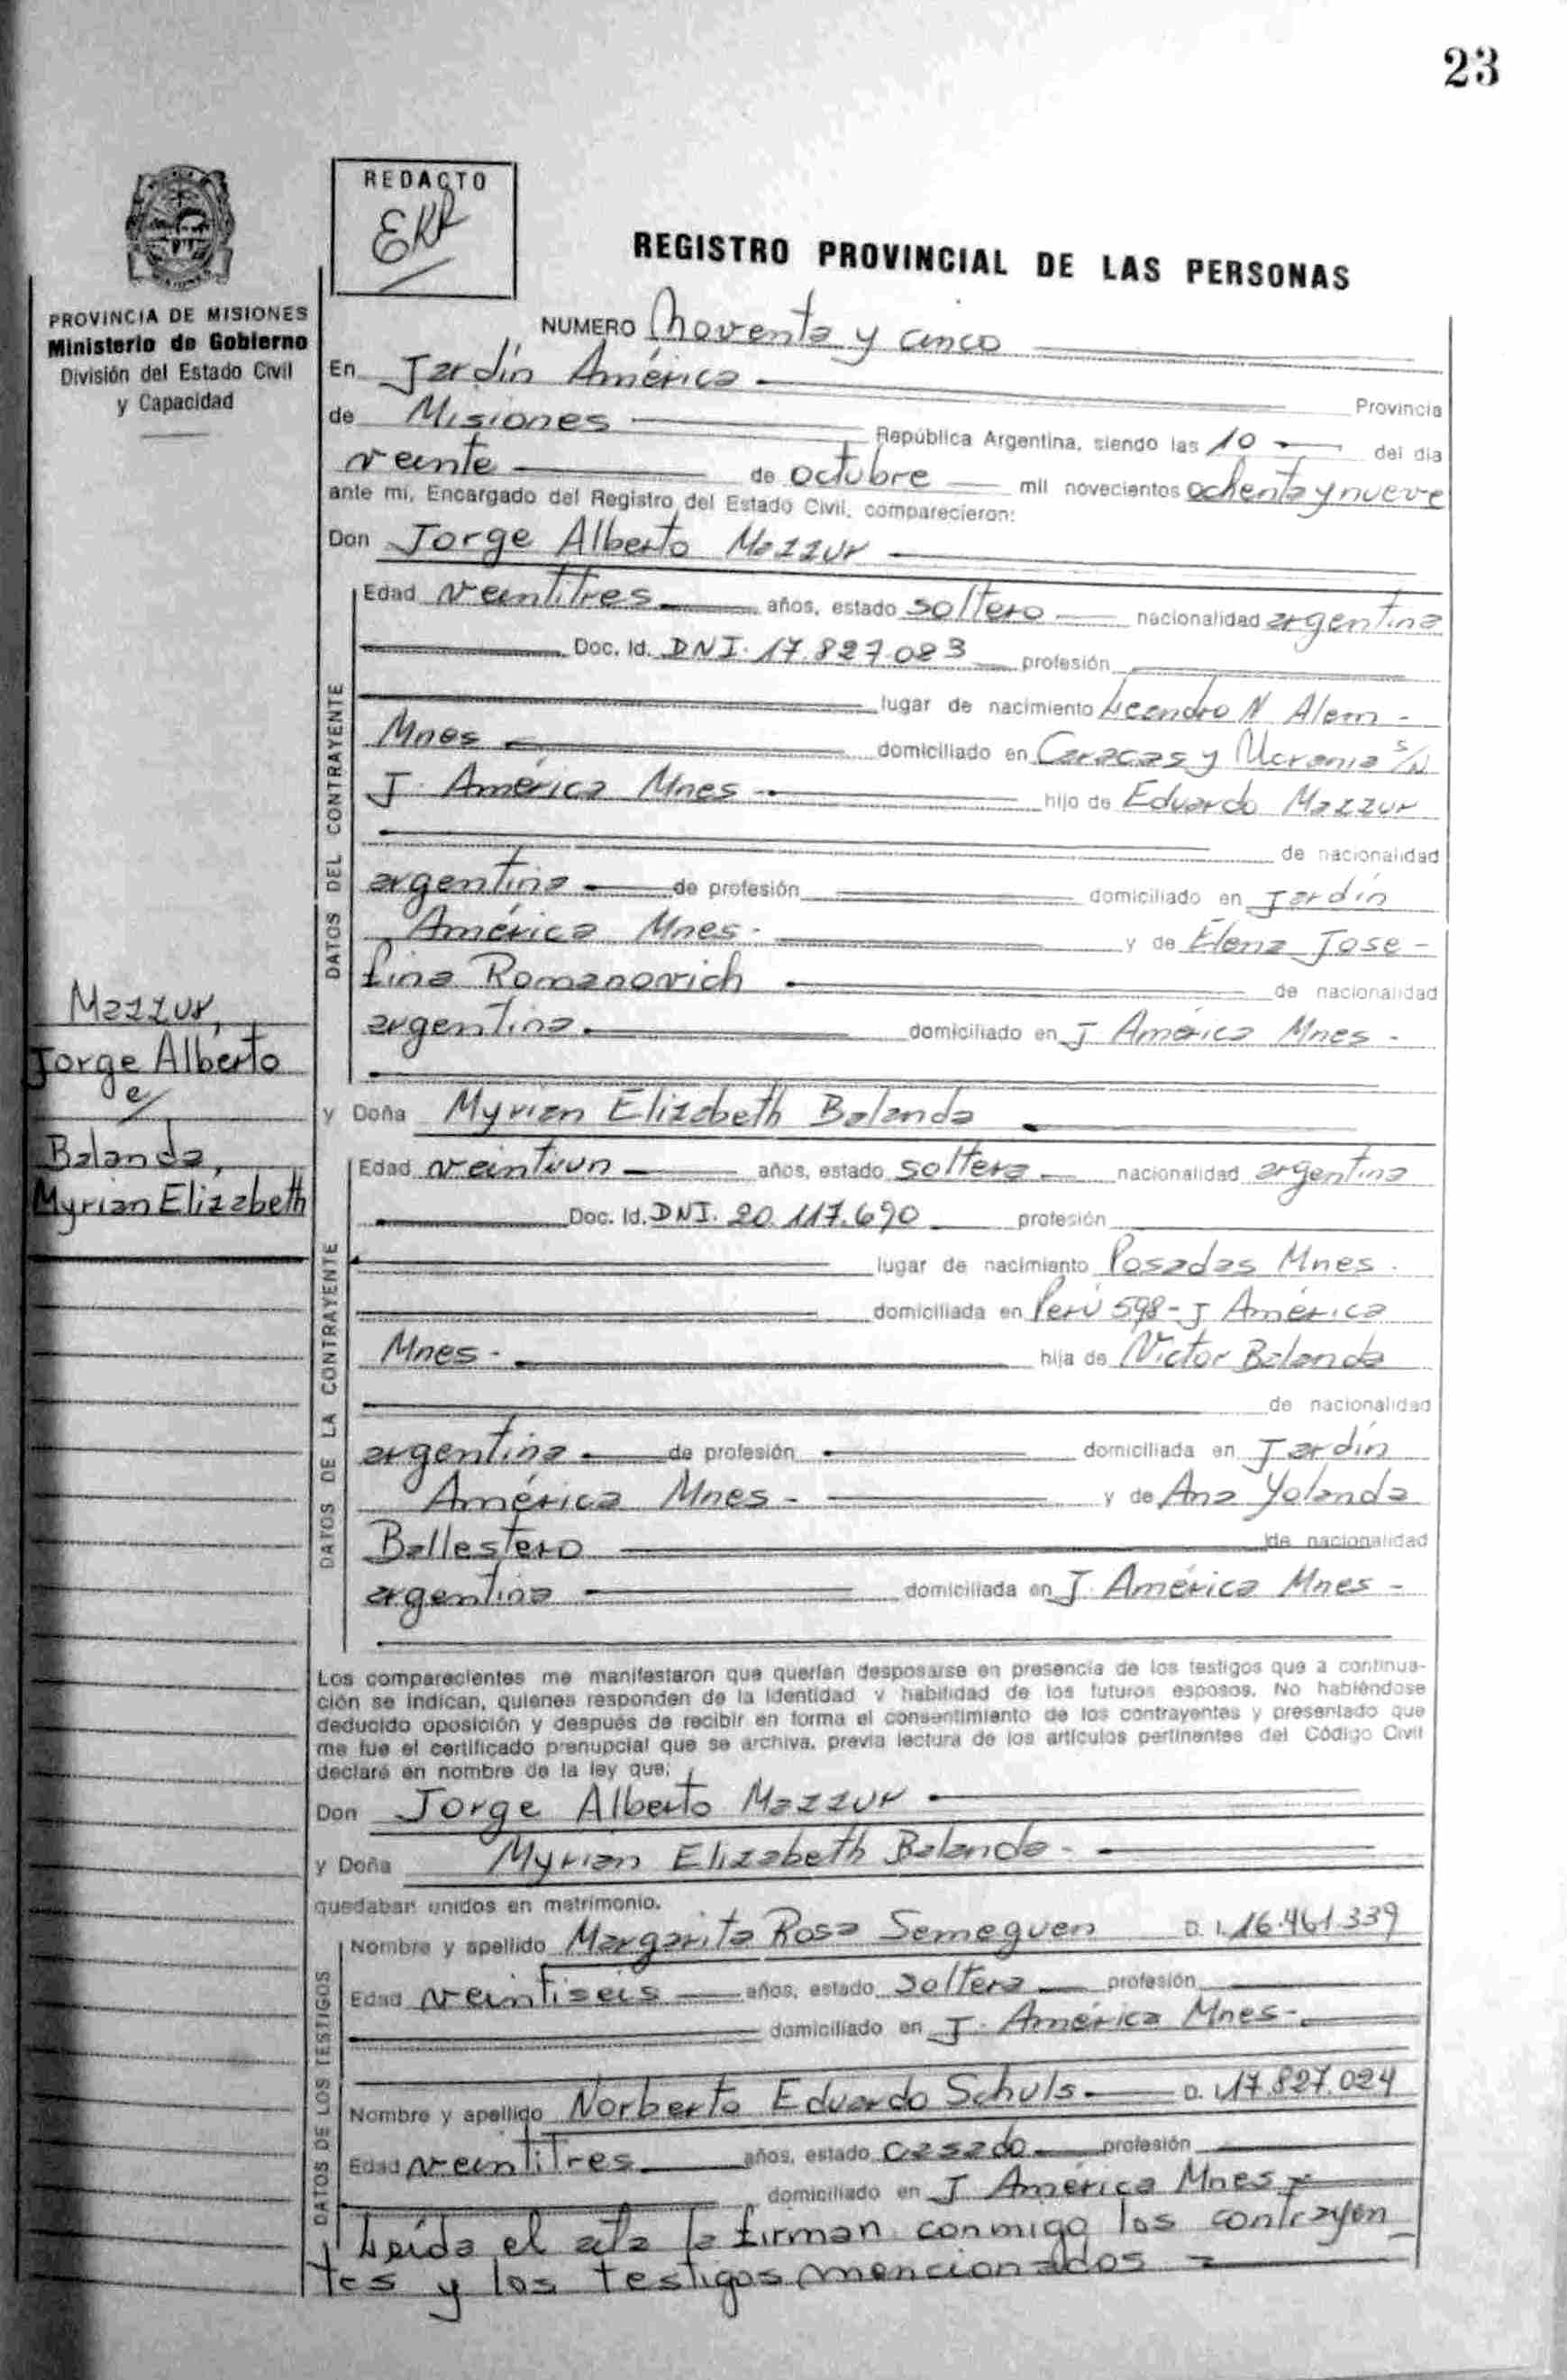 23
REDACTO
EKR
REGISTRO PROVINCIAL DE LAS PERSONAS
PROVINCIA DE MISIONES
Ministerio de Gobierno
División del Estado Civil
y Capacidad
NUMERO Noventa y cinco
En Jardín América
Provincia
de Misiones República Argentina, siendo las 10 del dia
veinte de octubre mil novecientos ochenta y nueve
ante mí, Encargado del Registro del Estado Civil, comparecieron:
Don Jorge Alberto Mazzur
DATOS DEL CONTRAYENTE
Edad veintitres años, estado soltero nacionalidad argentina
Doc. Id. DNI. 17.827.083 profesión
lugar de nacimiento Leandro N Alem -
Mnes domiciliado en Caracas y Ucrania s/N
J. América Mnes - hijo de Eduardo Mazzur
de nacionalidad
argentina de profesión domiciliado en Jardín
América Mnes. y de Elena Jose-
fina Romanovich de nacionalidad
argentina. domiciliado en J América Mnes -
Mazzur,
Jorge Alberto
c/
Balanda,
Myrian Elizabeth
y Doña Myrian Elizabeth Balanda
DATOS DE LA CONTRAYENTE
Edad veintiun años, estado soltera nacionalidad argentina
Doc. Id. DNI. 20.117.690 profesión
lugar de nacimiento Posadas Mnes.
domiciliada en Perú 598 - J América
Mnes - hija de Victor Balanda
de nacionalidad
argentina de profesión domiciliada en Jardín
América Mnes - y de Ana Yolanda
Ballestero de nacionalidad
argentina domiciliada en J. América Mnes -
Los comparecientes me manifestaron que querían desposarse en presencia de los testigos que a continua-
ción se indican, quienes responden de la identidad y habilidad de los futuros esposos. No habiéndose
deducido oposición y después de recibir en forma el consentimiento de los contrayentes y presentado que
me fue el certificado prenupcial que se archiva, previa lectura de los artículos pertinentes del Código Civil
declaré en nombre de la ley que:
Don Jorge Alberto Mazzur
y Doña Myrian Elizabeth Balanda -
quedaban unidos en matrimonio.
DATOS DE LOS TESTIGOS
Nombre y apellido Margarita Rosa Semeguen D. I. 16.461.339
Edad veintiseis años, estado soltera profesión
domiciliado en J. América Mnes -
Nombre y apellido Norberto Eduardo Schuls D. I. 17.827.024
Edad veintitres años, estado casado profesión
domiciliado en J América Mnes
Leída el acta la firman conmigo los contrayen
tes y los testigos mencionados =